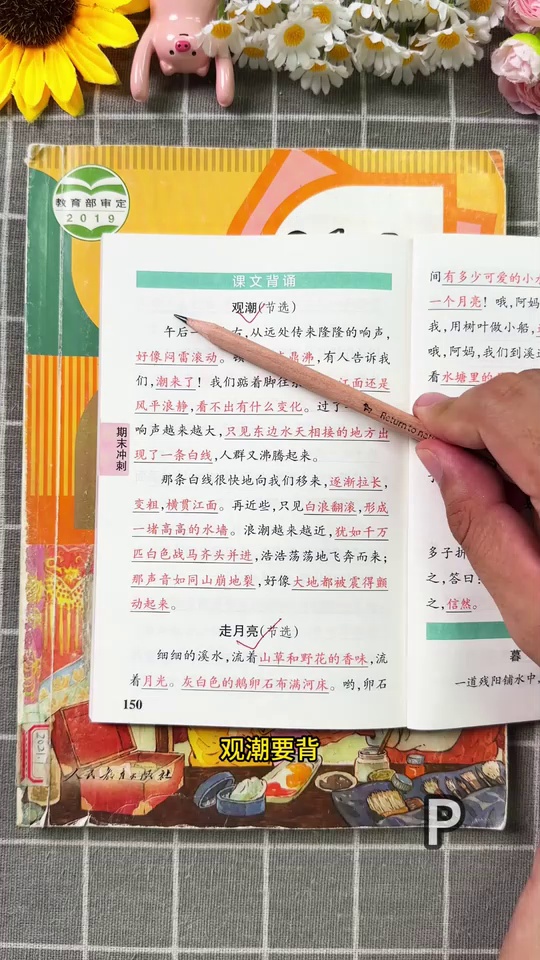 教育部审定
2019
课文背诵
观潮(节选)
午后一 右，从远处传来隆隆的响声，
好像闷雷滚动。 鼎沸，有人告诉我
们，潮来了！我们踮着脚往 江面还是
风平浪静，看不出有什么变化。过了
响声越来越大，只见东边水天相接的地方出
现了一条白线，人群又沸腾起来。
那条白线很快地向我们移来，逐渐拉长，
变粗，横贯江面。再近些，只见白浪翻滚，形成
一堵高高的水墙。浪潮越来越近，犹如千万
匹白色战马齐头并进，浩浩荡荡地飞奔而来；
那声音如同山崩地裂，好像大地都被震得颤
动起来。
走月亮(节选)
细细的溪水，流着山草和野花的香味，流
着月光。灰白色的鹅卵石布满河床。哟，卵石
150
期末冲刺
间有多少可爱的小水
一个月亮！哦，阿妈
我，用树叶做小船，
哦，阿妈，我们到溪
看水塘里的
多子折
之，答曰：
之，信然。
暮
一道残阳铺水中，
Return to na
人民教育出版社
观潮要背
P